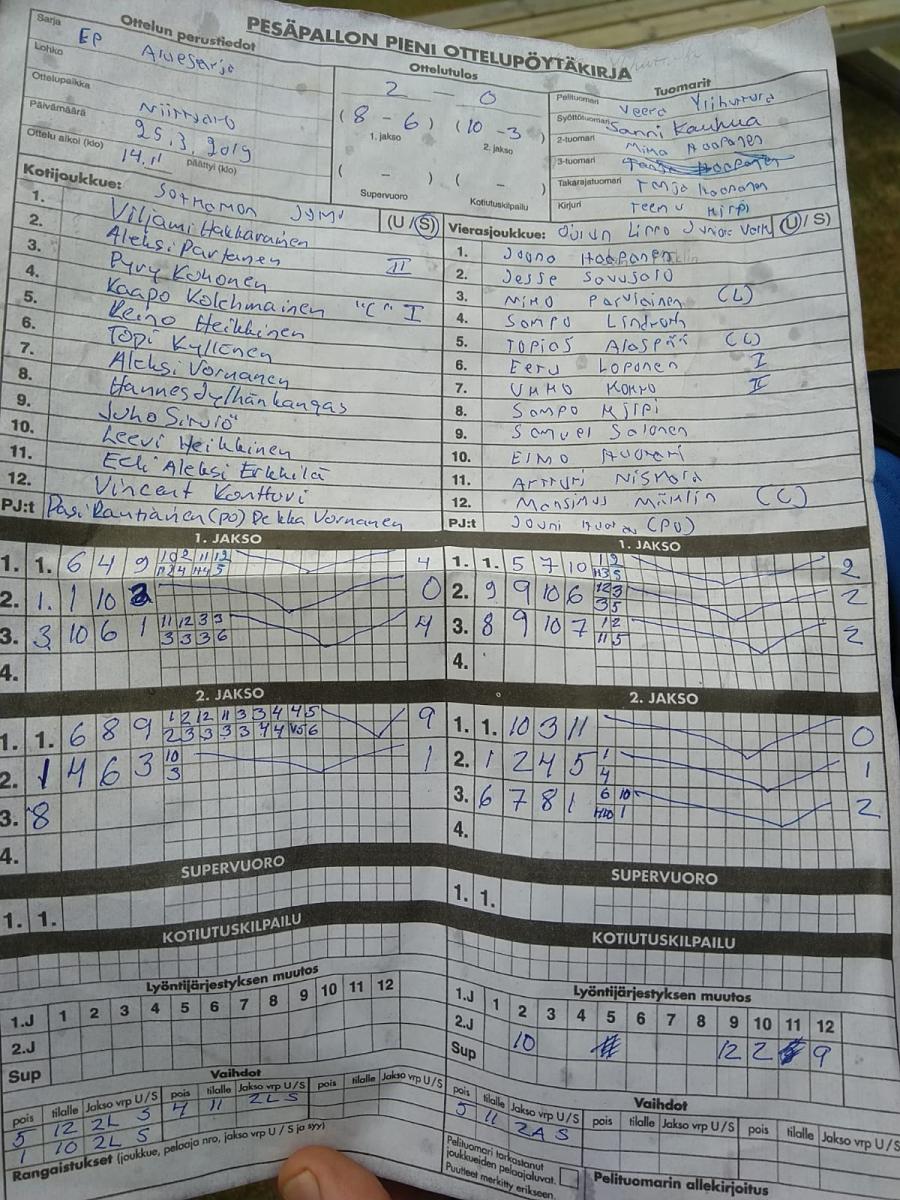 PESÄPALLON PIENI OTTELUPÖYTÄKIRJA
Ottelun perustiedot
Sarja EP Aluesarja
Lohko
Ottelupaikka
Päivämäärä 25.3.2019
Ottelu alkoi (klo) 14. päättyi (klo)
Ottelutulos
2 — 0
(8 - 6) (10 - 3)
1. jakso 2. jakso
( - ) ( - )
Supervuoro Kotiutuskilpailu
Tuomarit
Pelituomari Veera
Syöttötuomari Sanni Kauhua
2-tuomari Mika Haapanen
3-tuomari
Takarajatuomari Tanja Haapanen
Kirjuri Teemu Hirpi
Kotijoukkue: Sotkamon Jymy (U/S)
1. Viljami Hakkarainen
2. Aleksi Partanen II
3. Pyry Kokonen
4. Kaapo Kolehmainen "C" I
5. Reino Heikkinen
6. Topi Kyllönen
7. Aleksi Vornanen
8. Hannes Jylhänkangas
9. Juho Sirviö
10. Leevi Heikkinen
11. Eeli Aleksi Erkkilä
12. Vincent Konttori
PJ:t Pasi Rautiainen (PO) Pekka Vornanen
Vierasjoukkue: Oulun Lippo Juniorit (U/S)
1. Haapanen
2. Jesse Savusalo
3. Niko Parviainen (L)
4. Sampo Lindroth
5. Topias Alaspää (L)
6. Eeru Loponen I
7. Urho Kokko II
8. Sampo Hirpi
9. Samuel Salonen
10. Eino
11. Artturi Niskala
12. Märklin (C)
PJ:t Jouni (PO)
1. JAKSO
1. 1. 6 4 9 4
2. 1. 1 10 2 0
3. 3 10 6 1 11 12 3 3 4
3 3 3 6
4.
1. JAKSO
1. 1. 5 7 10 2
2. 9 9 10 6 12 3 2
3 5
3. 8 9 10 7 1 2 2
11 5
4.
2. JAKSO
1. 1. 6 8 9 1 2 12 11 3 3 4 4 5 9
2 3 3 3 3 4 4 V5 6
2. 1 4 6 3 10 1
3
3. 8
4.
2. JAKSO
1. 1. 10 3 11 0
2. 1 2 4 5 1 1
4
3. 6 7 8 1 6 10 2
H10 1
4.
SUPERVUORO
1. 1.
SUPERVUORO
1. 1.
KOTIUTUSKILPAILU
KOTIUTUSKILPAILU
Lyöntijärjestyksen muutos
1.J 1 2 3 4 5 6 7 8 9 10 11 12
2.J
Sup
Lyöntijärjestyksen muutos
1.J 1 2 3 4 5 6 7 8 9 10 11 12
2.J 10 12 2 9
Sup
Vaihdot
pois tilalle Jakso vrp U/S pois tilalle Jakso vrp U/S pois tilalle Jakso vrp U/S
5 12 2L S 4 11 2L S
1 10 2L S
Rangaistukset (joukkue, pelaaja nro, jakso vrp U / S ja syy)
Vaihdot
pois tilalle Jakso vrp U/S pois tilalle Jakso vrp U/S pois tilalle Jakso vrp U/S
5 11 2A S
Pelituomari tarkastanut
joukkueiden pelaajaluvat.
Puutteet merkitty erikseen.
Pelituomarin allekirjoitus